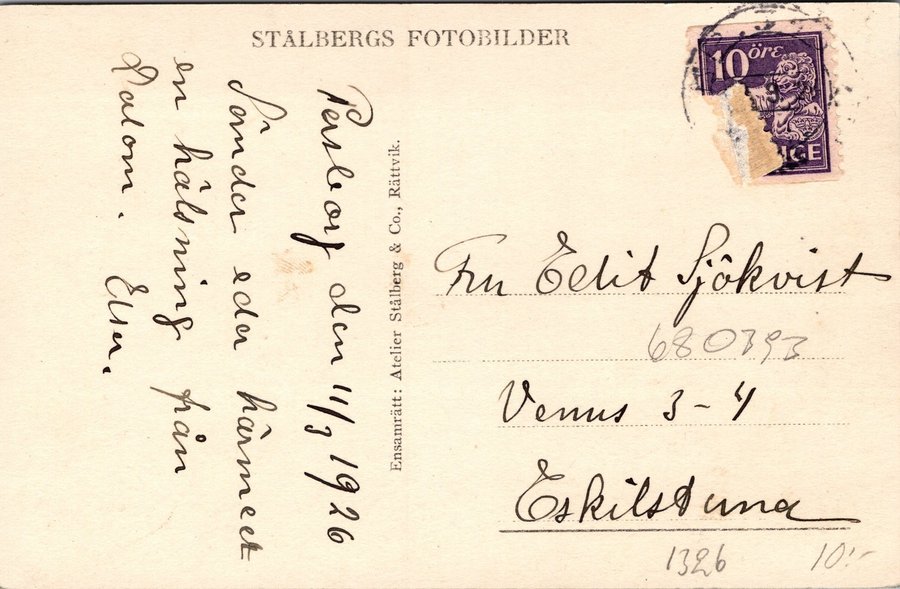 STÅLBERGS FOTOBILDER
10 öre
Persborg den 11/3 1926
Sänder eder härmed
en hälsning från
Dalom. Elsa.
Ensamrätt: Atelier Stålberg & Co., Rättvik.
Fru Edit Sjökvist
680393
Venus 3-4
Eskilstuna
1326
10:-